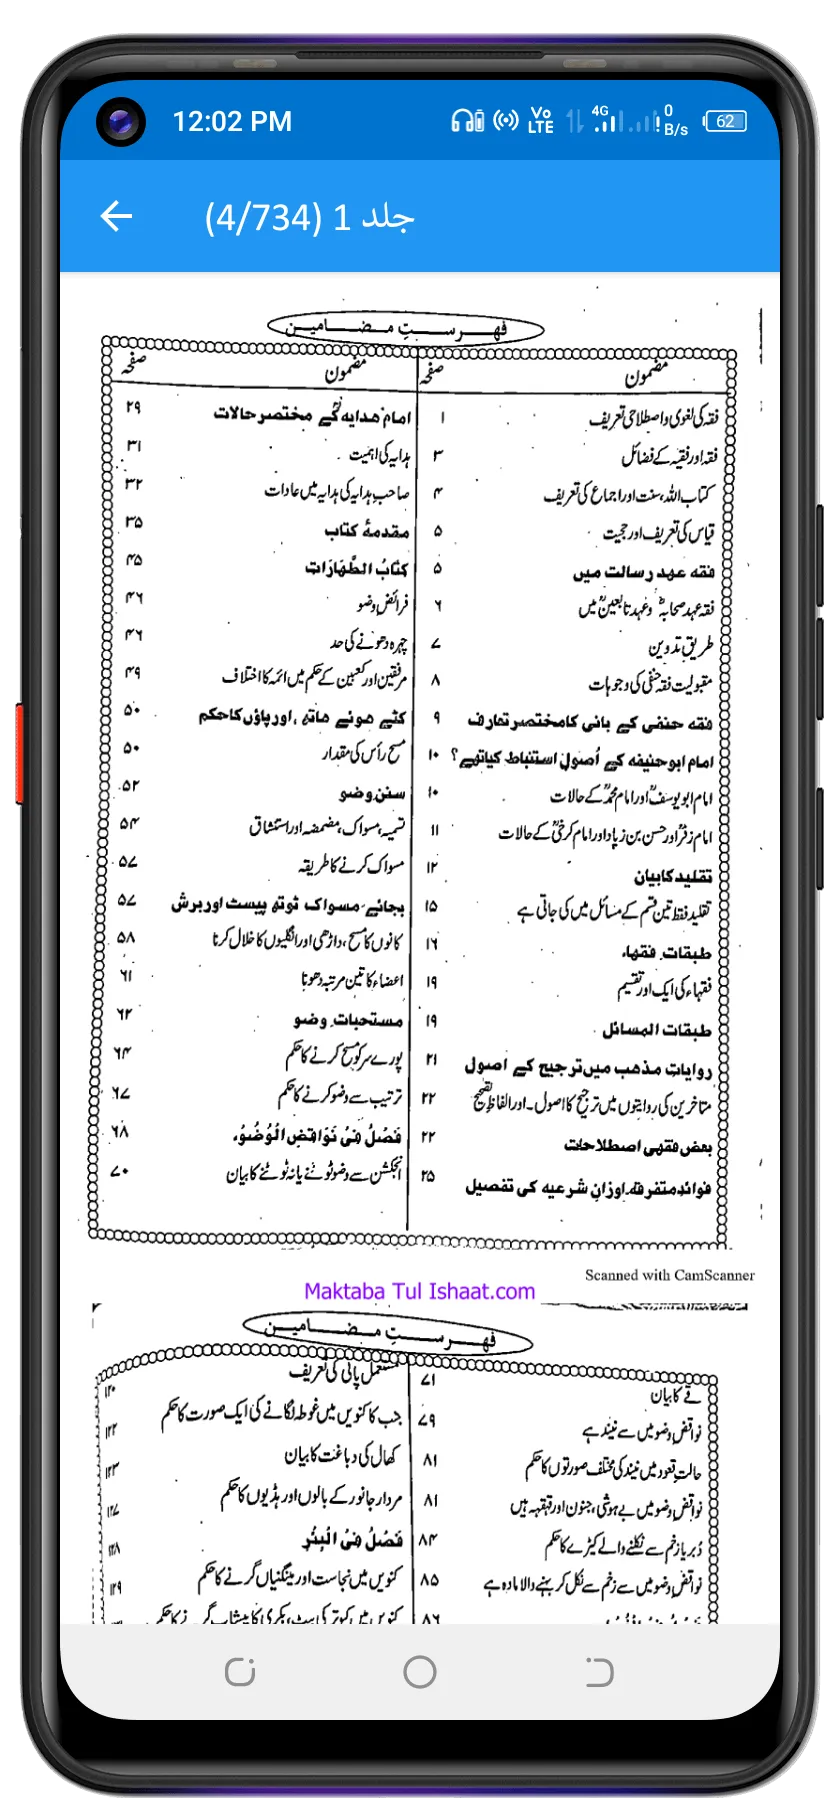 12:02 PM
Vo LTE 4G 0 B/s 62
جلد 1 (4/734)
فہرستِ مضامین
مضمون
صفحہ
فقہ کی لغوی و اصطلاحی تعریف ۱
فقہ اور فقیہ کے فضائل ۳
کتاب اللہ، سنت اور اجماع کی تعریف ۴
قیاس کی تعریف اور حجیت ۵
فقہ عہد رسالت میں ۵
فقہ عہد صحابہؓ و عہد تابعینؒ میں ۶
طریقِ تدوین ۷
مقبولیت فقہ حنفی کی وجوہات ۸
فقہ حنفی کے بانی کا مختصر تعارف ۹
امام ابو حنیفہ کے اُصولِ استنباط کیا تھے؟ ۱۰
امام ابو یوسفؒ اور امام محمدؒ کے حالات ۱۰
امام زفرؒ اور حسن بن زیاد اور امام کرخیؒ کے حالات ۱۱
تقلید کا بیان ۱۲
تقلید فقط تین قسم کے مسائل میں کی جاتی ہے ۱۵
طبقات فقہاء ۱۶
فقہاء کی ایک اور تقسیم ۱۹
طبقات المسائل ۱۹
روایاتِ مذھب میں ترجیح کے اصول ۲۱
متاخرین کی روایتوں میں ترجیح کا اصول۔ اور الفاظِ تصحیح ۲۲
بعض فقہی اصطلاحات ۲۲
فوائدِ متفرقہ اوزانِ شرعیہ کی تفصیل ۲۵
مضمون
صفحہ
امام ھدایہ کے مختصر حالات ۲۹
ہدایہ کی اہمیت ۳۱
صاحبِ ہدایہ کی ہدایہ میں عادات ۳۲
مقدمۂ کتاب ۳۵
کتابُ الطَّهَارَاتِ ۴۵
فرائضِ وضو ۴۶
چہرہ دھونے کی حد ۴۶
مرفقین اور کعبین کے حکم میں ائمہ کا اختلاف ۴۹
کٹے ھوئے ھاتھ، اور پاؤں کا حکم ۵۰
مسح رأس کی مقدار ۵۰
سنن وضو ۵۲
تسمیہ، مسواک، مضمضہ اور استنشاق ۵۴
مسواک کرنے کا طریقہ ۵۷
بجائے مسواک ٹوتھ پیسٹ اور برش ۵۷
کانوں کا مسح، داڑھی اور انگلیوں کا خلال کرنا ۵۸
اعضاء کا تین مرتبہ دھونا ۶۱
مستحبات وضو ۶۲
پورے سر کو مسح کرنے کا حکم ۶۴
ترتیب سے وضو کرنے کا حکم ۶۷
فَصْلٌ فِیْ نَوَاقِضِ الْوُضُوْء ۶۸
انجکشن سے وضو ٹوٹنے یا نہ ٹوٹنے کا بیان ۷۰
Scanned with CamScanner
Maktaba Tul Ishaat.com
فہرستِ مضامین
قے کا بیان ۷۱
نواقضِ وضو میں سے نیند ہے ۷۹
حالتِ قعود میں نیند کی مختلف صورتوں کا حکم ۸۱
نواقضِ وضو میں بے ہوشی، جنون اور قہقہہ ہیں ۸۱
دُبر یا زخم سے نکلنے والے کیڑے کا حکم ۸۴
نواقضِ وضو میں سے زخم سے نکل کر بہنے والا مادہ ہے ۸۵
۸۶
مستعمل پانی کی تعریف ۱۲۰
جب کا کنویں میں غوطہ لگانے کی ایک صورت کا حکم ۱۲۲
کھال کی دباغت کا بیان ۱۲۳
مردار جانور کے بالوں اور ہڈیوں کا حکم ۱۲۷
فَصْلٌ فِیْ الْبِئْرِ ۱۲۸
کنویں میں نجاست اور مینگنیاں گرنے کا حکم ۱۲۹
کنویں میں کبوتر کی بیٹ، بکری کا پیشاب گرنے کا حکم